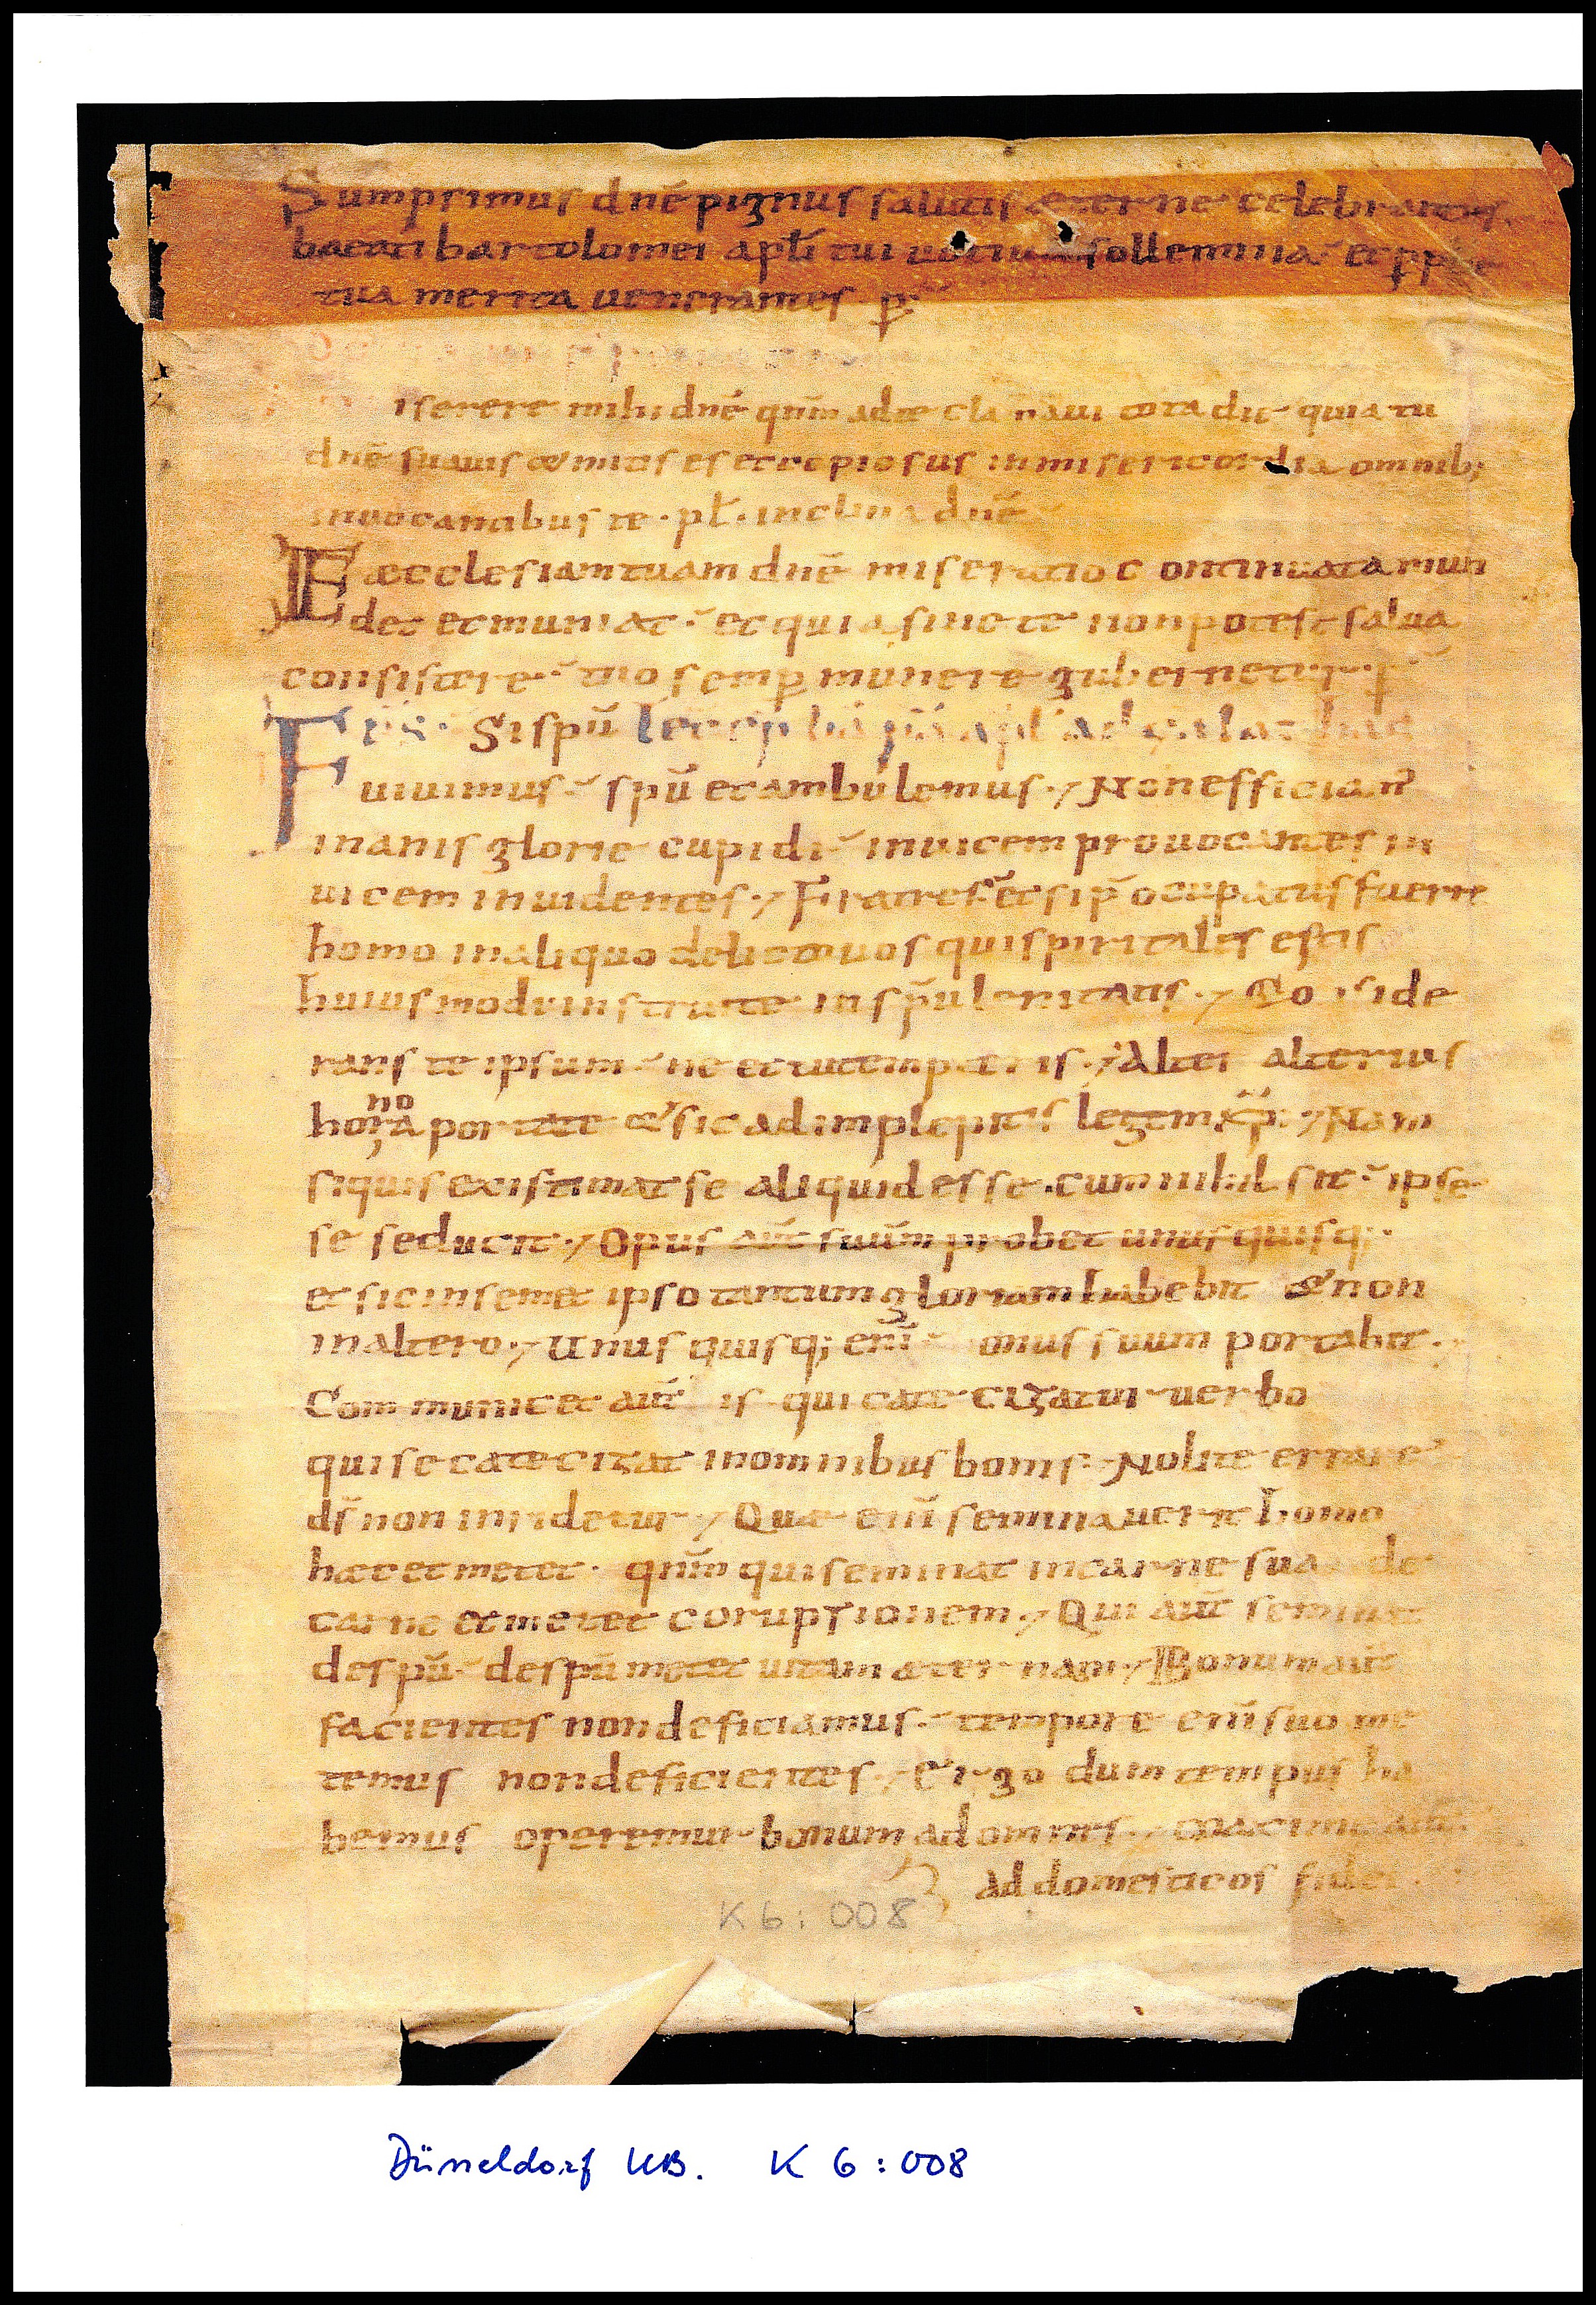 Sumpsimus dnē pignus salutis aeterne celebrantes
baeati bartolomei apłi tui uotiua sollemnia et pp&
tua merita uenerantes p̄
iserere mihi dnē qnm̄ ad te clamaui tota die quia tu
dnē suauis & mitis es et copiosus in misericordia omnib;
inuocantibus te · pł · inclina dnē
Eaecclesiam tuam dnē miseratio continuata mun
det et muniat et quia sine te non potest salua
consistere tuo semp munere gubernetur p̄
Frs Si spū lec ep ba pa apł ad galathas
uiuimus spū et ambulemus · Non efficiam̄
inanis glorie cupidi inuicem prouocantes in
uicem inuidentes · Fratres et si p̄ocupatus fuerit
homo in aliquo delicto uos qui spiritales estis
huiusmodi instruite in spū lenitatis · Co side
rans te ipsum ne et tu tempteris · Alter alterius
no
hora portate & sic adimplepitis legem xp̄i · Nam
siquis existimat se aliquid esse cum nihil sit ipse
se seducit · Opus aut̄ suūm probet unusquisq;
et sic in semet ipso tantum gloriam habebit & non
in altero · Unusquisq; eni̅ onus suum portabit ·
Communicet aut̄ is qui catecizatur uerbo
qui se catecizat in omnibus bonis · Nolite errare
ds̄ non inridetur · Quae eni̅ seminauerit homo
haec et metet · qnm̄ qui seminat in carne sua de
carne et metet coruptionem · Qui aut̄ seminat
de spū de spū metet uitam aeternam · Bonum aut̄
facientes non deficiamus · tempore eni̅ suo me
temus non deficientes · Ergo dum tempus ha
bemus operemur bonum ad omnes · maxime aut̄
ad domesticos fidei ·
K 6 : 008
Düsseldorf UB. K 6 : 008